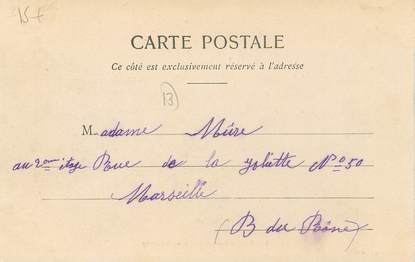 15+
CARTE POSTALE
Ce côté est exclusivement réservé à l'adresse
13
Madame Mûre
au 2ème étage Rue de la Joliette N° 50
Marseille
(B du Rône)